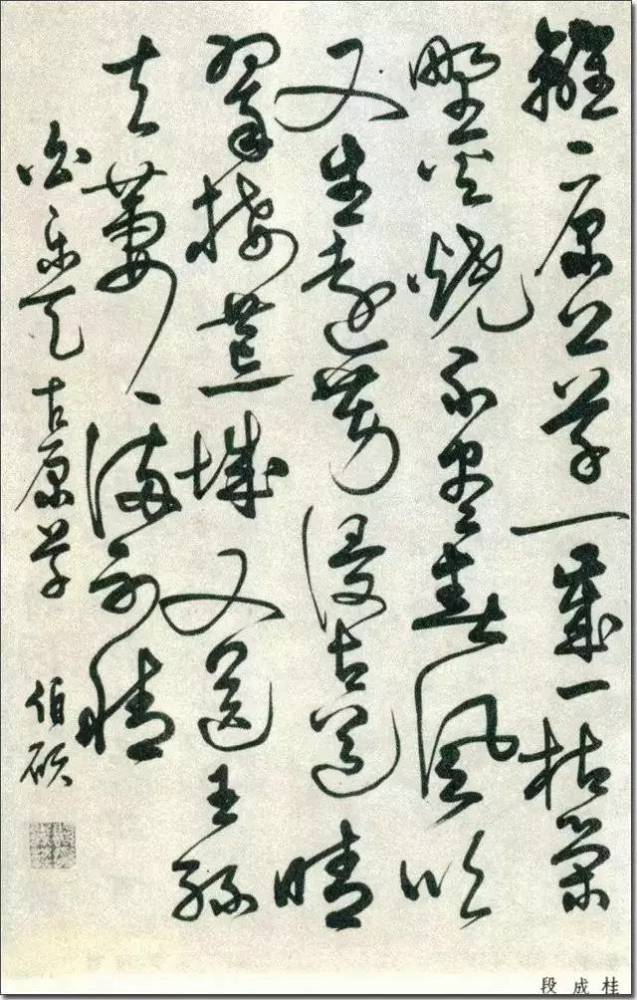 離〻原上草一歲一枯榮
野火烧不盡春風吹
又生遠芳侵古道晴
翠接荒城又送王孫
去萋〻滿别情
白乐天古原草 伯硕
段成桂